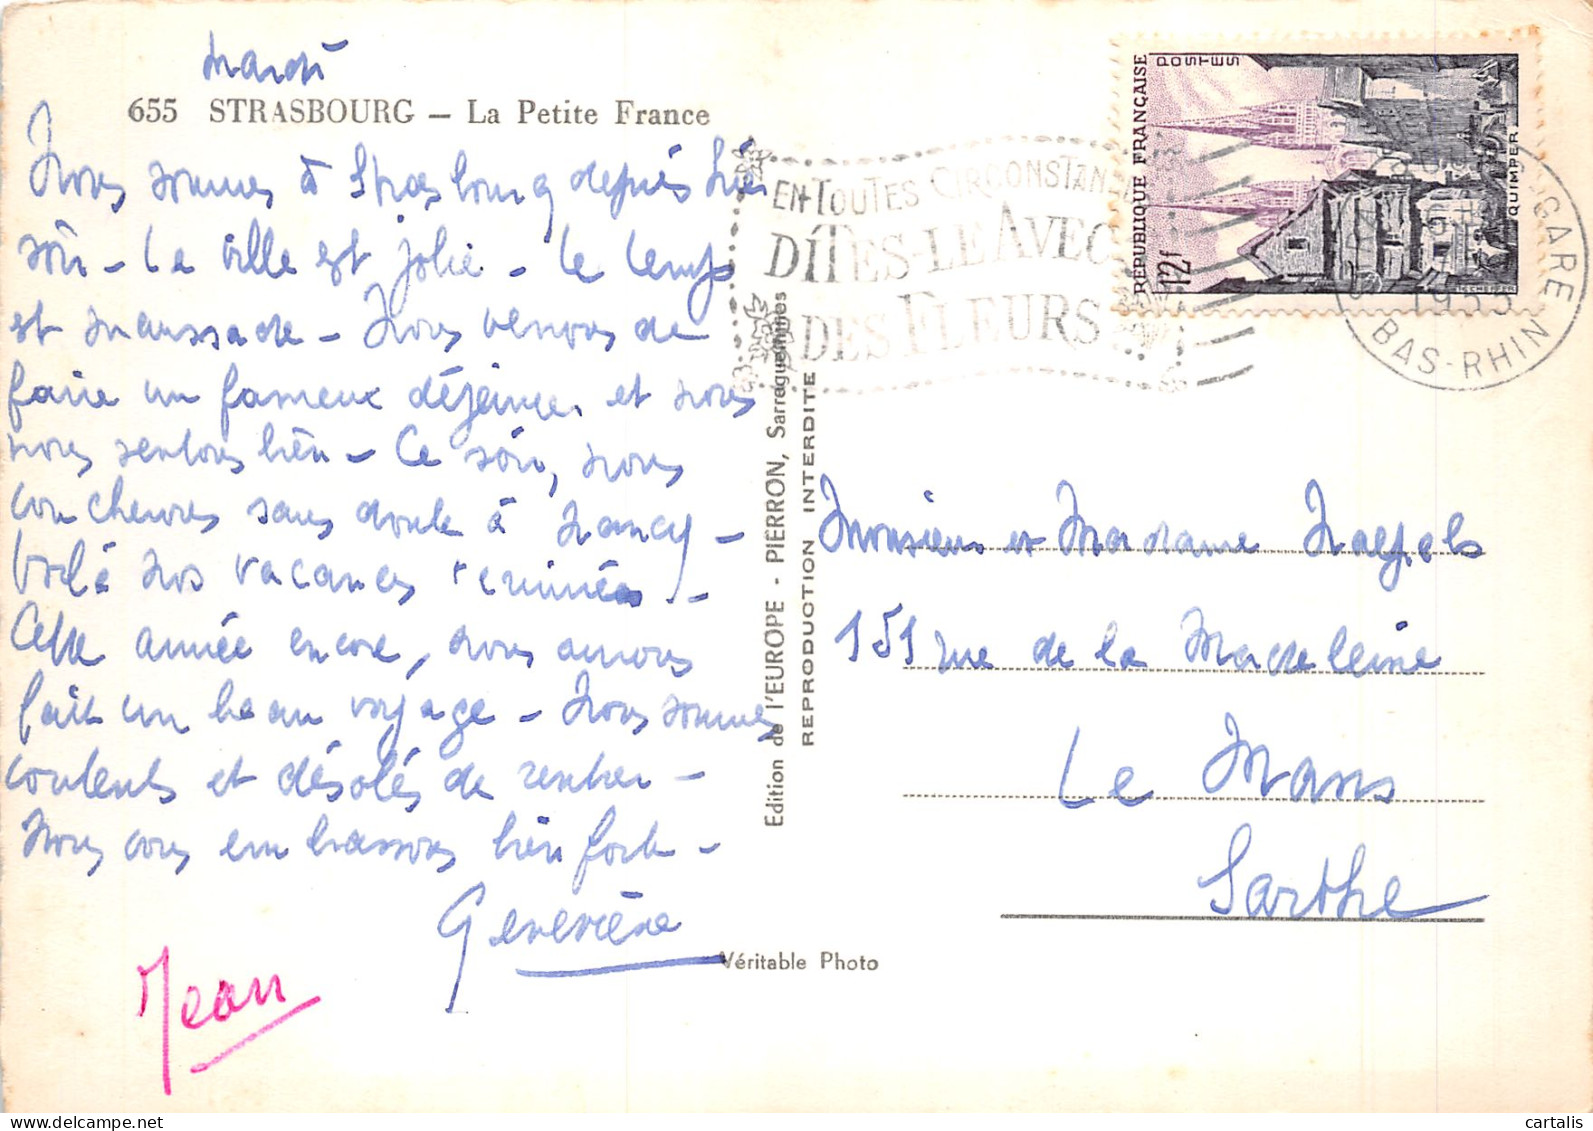 Mardi
655 STRASBOURG – La Petite France
Nous sommes à Strasbourg depuis hier
soir – La ville est jolie – Le temps
est maussade – Nous venons de
faire un fameux déjeuner et nous
nous sentons bien – Ce soir, nous
coucherons sans doute à Nancy –
Voilà nos vacances terminées –
Cette année encore, nous aurons
fait un beau voyage – Nous sommes
contents et désolés de rentrer –
Nous vous embrassons bien fort –
Geneviève
Jean
Edition de l'EUROPE - PIERRON, Sarreguemines
REPRODUCTION INTERDITE
Véritable Photo
EN TOUTES CIRCONSTAN
DITES-LE AVEC
DES FLEURS
RÉPUBLIQUE FRANÇAISE
POSTES
12f
QUIMPER
GARE
1955
BAS-RHIN
Monsieur et Madame
151 rue de la Madeleine
Le Mans
Sarthe
cartalis
delcampe.net